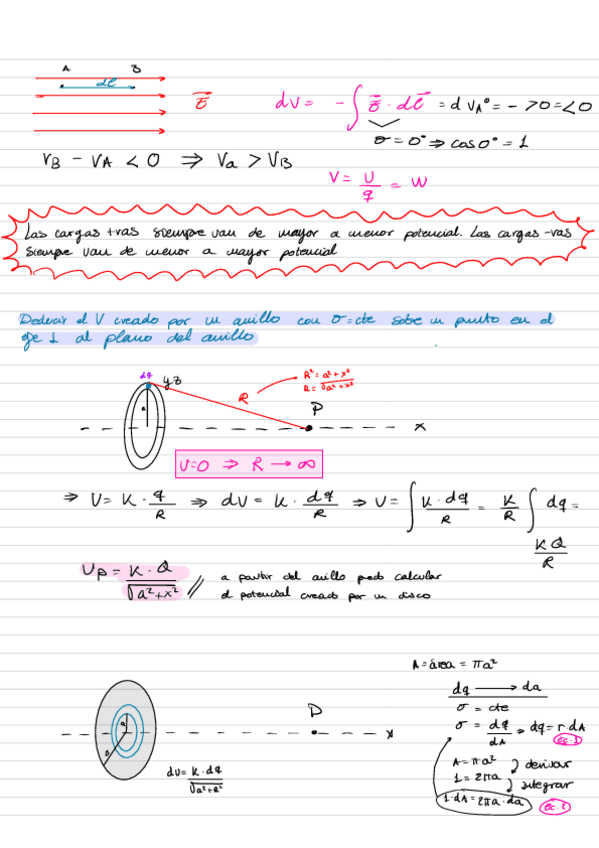 A B
dl
E⃗
dV = - ∫ E⃗ · dl⃗ = d VA° = - >0 = <0
σ = 0° ⇒ cos 0° = 1
VB - VA < 0 ⇒ Va > VB
V = U/q = W
Las cargas +vas siempre van de mayor a menor potencial. Las cargas -vas
siempre van de menor a mayor potencial
Deducir el V creado por un anillo con σ = cte sobre un punto en el
eje ⊥ al plano del anillo
dq yz
R² = a² + x²
R = √a² + x²
R
P
a
x
V=0 ⇒ R → ∞
⇒ V = K · q/R ⇒ dV = K · dq/R ⇒ V = ∫ K · dq/R = K/R ∫ dq =
KQ/R
Up = K · Q/√a² + x² //
a partir del anillo puedo calcular
el potencial creado por un disco
A = área = πa²
dq → da
σ = cte
σ = dq/dA ⇒ dq = r dA
Ec. 1
A = πa² ) derivar
1 = 2πa ) integrar
1 · dA = 2πa · da
Ec. 2
P
a
x
dV = K · dq/√a² + R²